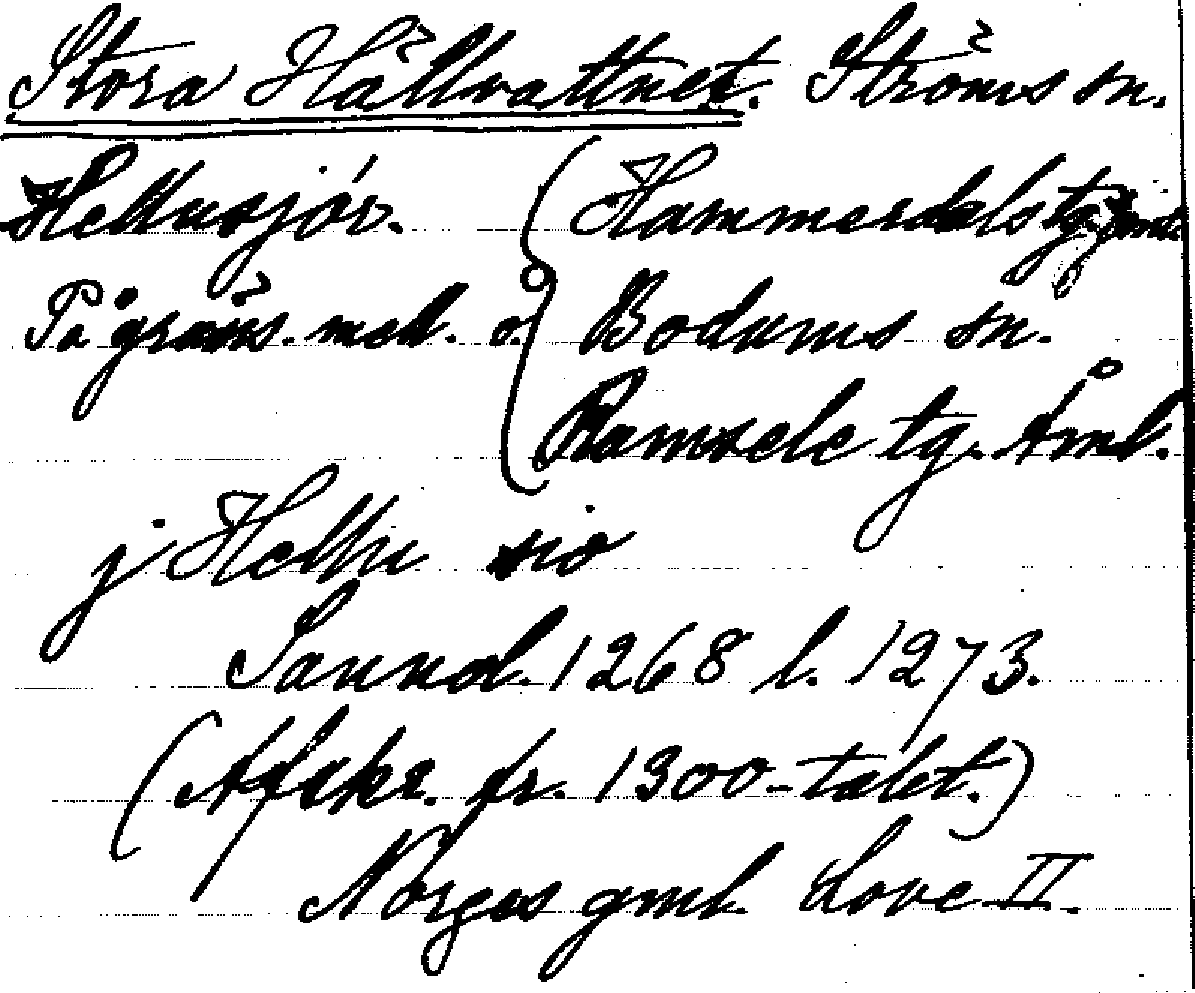 Stora Hällvattnet. Ströms sn.
Hellusjór. Hammerdals tg. Jmtl.
På gräns. mell. o. Bodums sn.
Ramsele tg. Åml.
j Hellu sio
Sannol. 1268 l. 1273.
(Afskr. fr. 1300-talet.)
Norges gml. Love II.